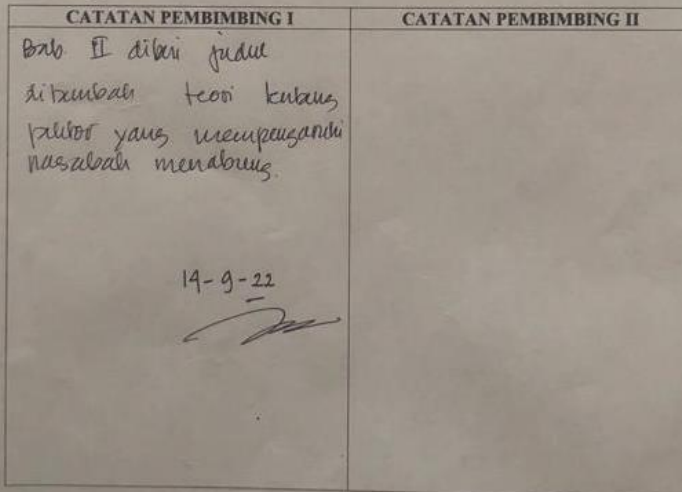 CATATAN PEMBIMBING I
CATATAN PEMBIMBING II
Bab II diberi judul
ditambah teori tentang
faktor yang mempengaruhi
nasabah menabung.
14-9-22